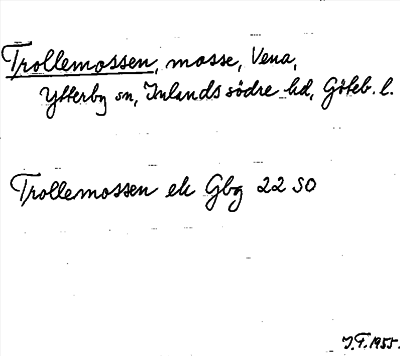 Trollemossen, mosse, Vena,
Ytterby sn, Inlands södre hd, Göteb. l.
Trollemossen ek Gbg 22 SO
J.F. 1955.